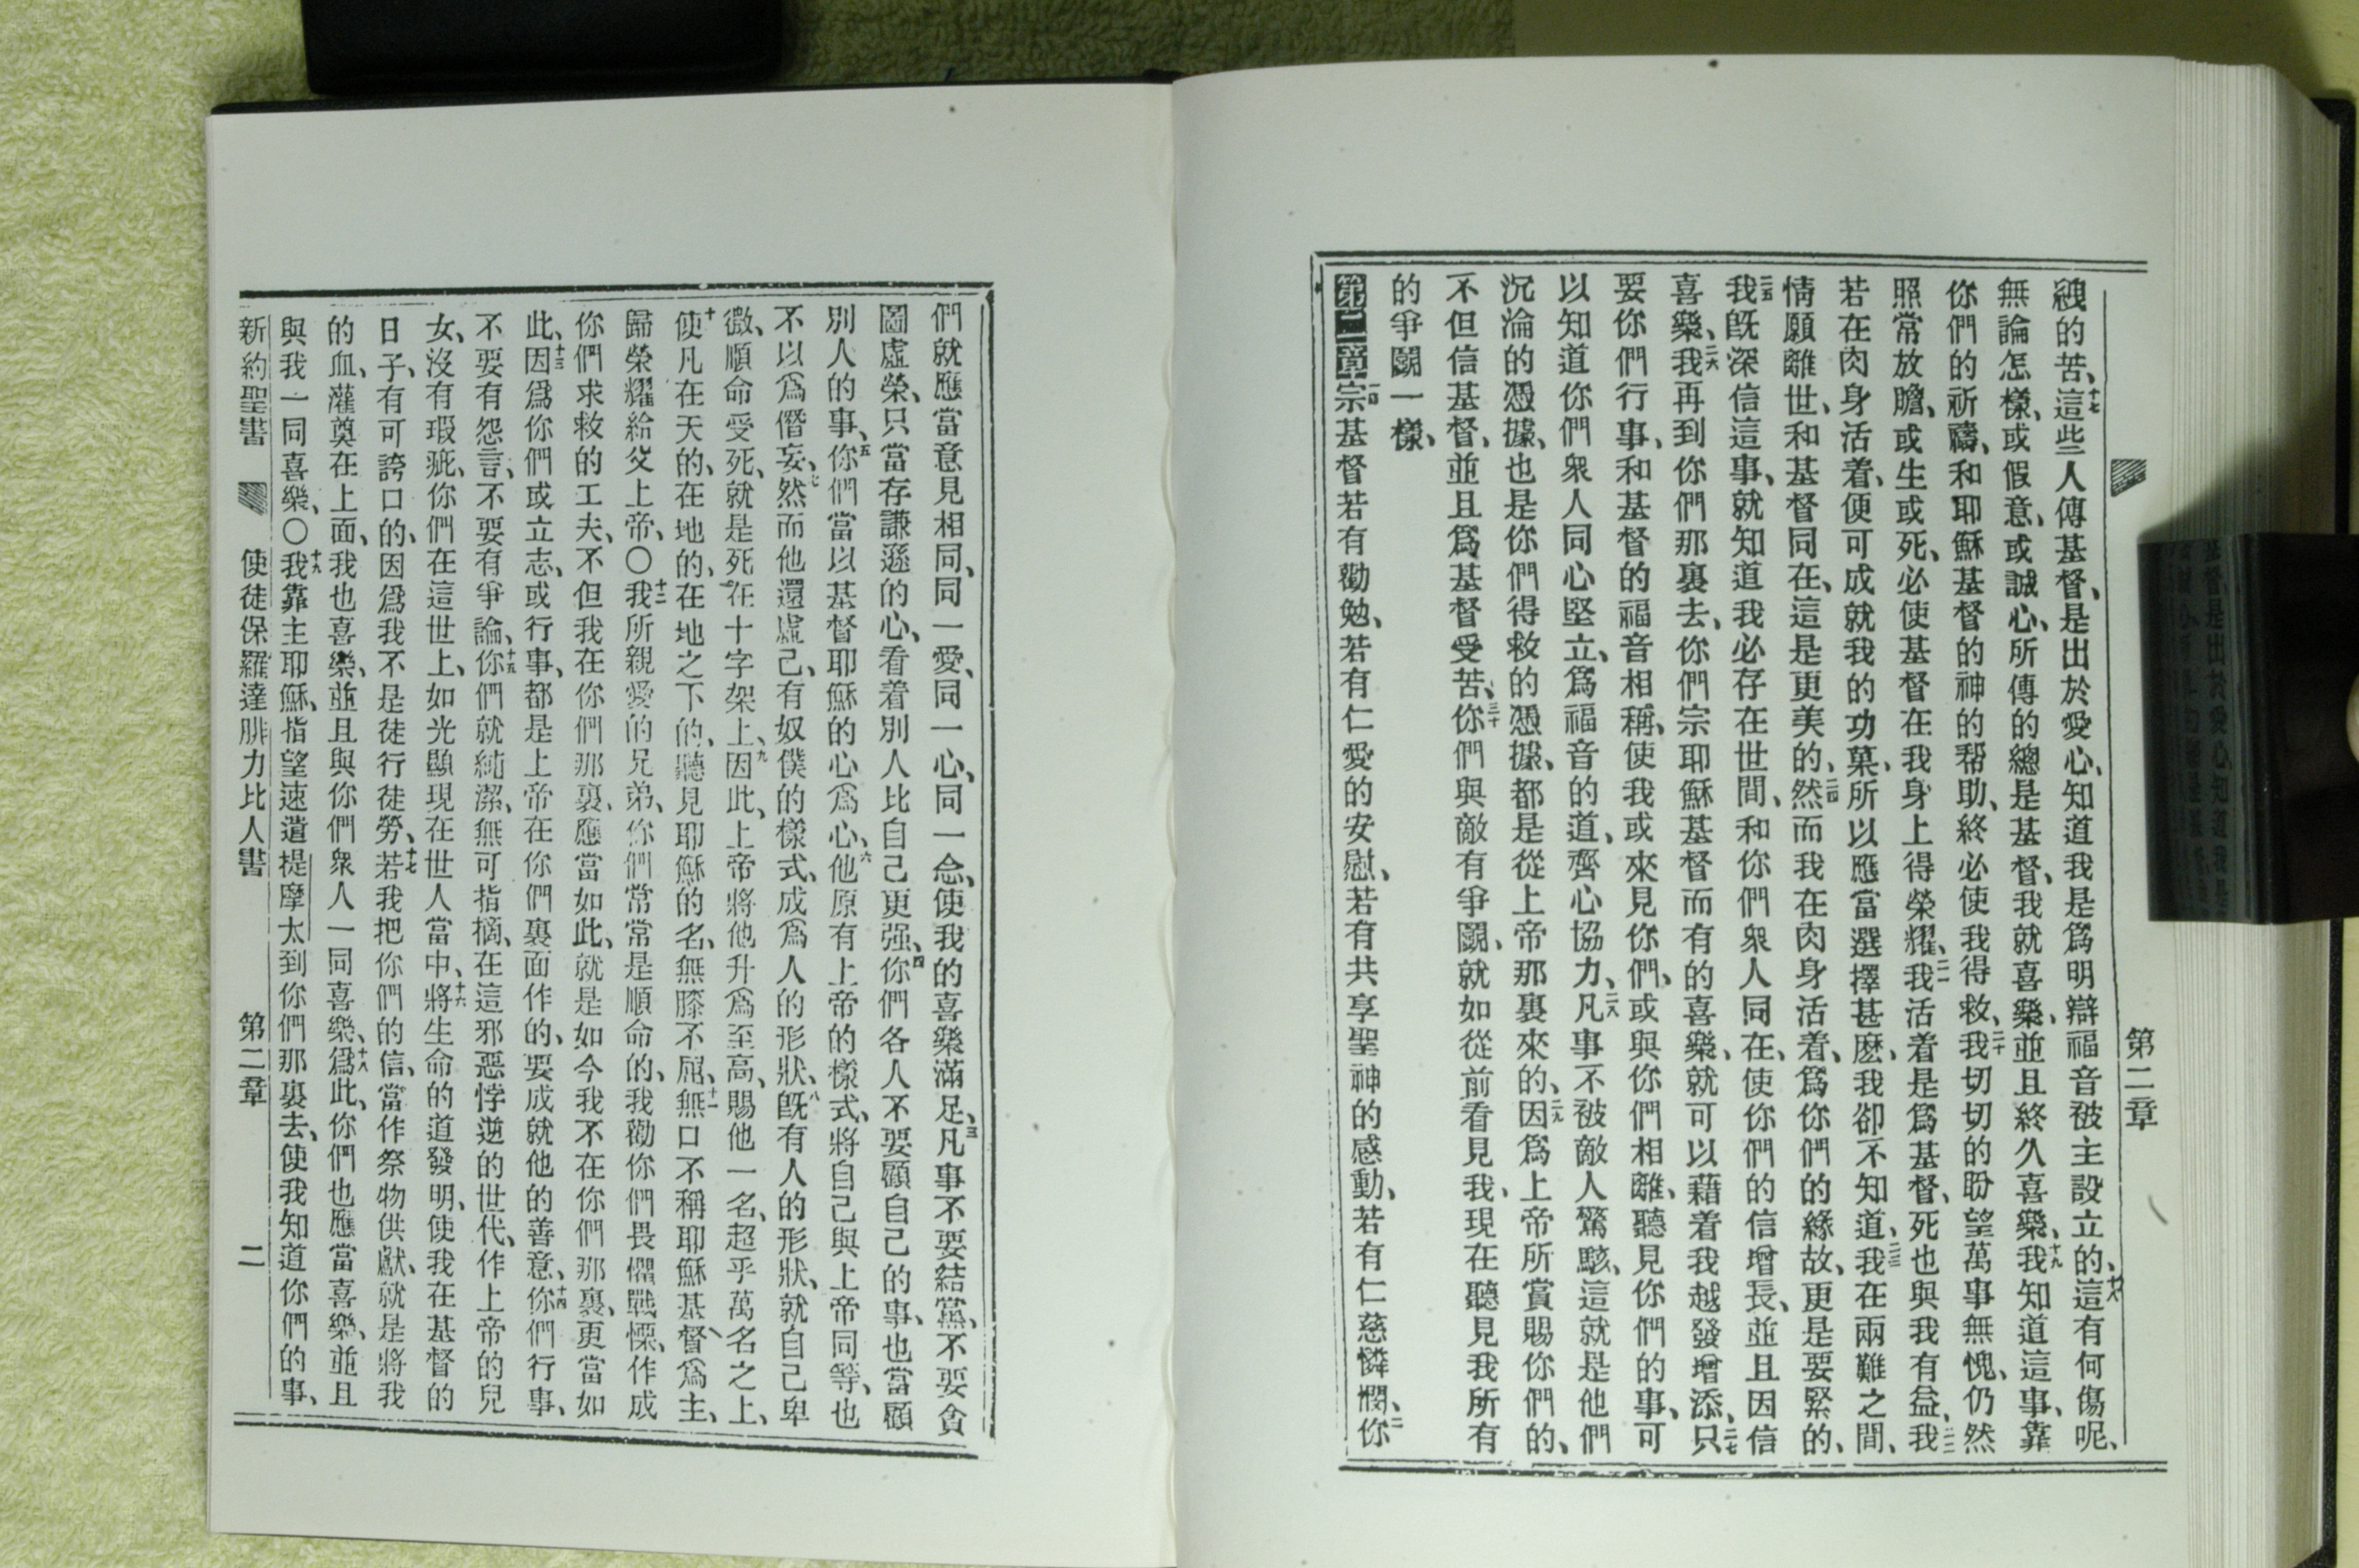 第二章
絏的苦、十七這些人傳基督、是出於愛心、知道我是爲明辯福音被主設立的、十八這有何傷呢、
無論怎樣、或假意、或誠心、所傳的總是基督、我就喜樂、並且終久喜樂、十九我知道這事、靠
你們的祈禱、和耶穌基督的神的帮助、終必使我得救、二十我切切的盼望萬事無愧、仍然
照常放膽、或生或死、必使基督在我身上得榮耀、二一我活着是爲基督、死也與我有益、二二我
若在肉身活着、便可成就我的功菓、所以應當選擇甚麽、我卻不知道、二三我在兩難之間、
情願離世、和基督同在、這是更美的、二四然而我在肉身活着、爲你們的緣故、更是要緊的、
二五我旣深信這事、就知道我必存在世間、和你們衆人同在、使你們的信增長、並且因信
喜樂、二六我再到你們那裏去、你們宗耶穌基督而有的喜樂、就可以藉着我越發增添、二七只
要你們行事、和基督的福音相稱、使我或來見你們、或與你們相離、聽見你們的事、可
以知道你們衆人同心堅立、爲福音的道、齊心協力、二八凡事不被敵人驚駭、這就是他們
沉淪的憑據、也是你們得救的憑據、都是從上帝那裏來的、二九因爲上帝所賞賜你們的、
不但信基督、並且爲基督受苦、三十你們與敵有爭鬭、就如從前看見我、現在聽見我所有
的爭鬭一樣、
第二章一宗基督若有勸勉、若有仁愛的安慰、若有共享聖神的感動、若有仁慈憐憫、二你
們就應當意見相同、同一愛、同一心、同一念、使我的喜樂滿足、三凡事不要結黨、不要貪
圖虛榮、只當存謙遜的心、看着別人比自己更强、四你們各人不要顧自己的事、也當顧
別人的事、五你們當以基督耶穌的心爲心、六他原有上帝的樣式、將自己與上帝同等、也
不以爲僭妄、七然而他還虛己、有奴僕的樣式、成爲人的形狀、八旣有人的形狀、就自己卑
微、順命受死、就是死在十字架上、九因此、上帝將他升爲至高、賜他一名、超乎萬名之上、
十使凡在天的、在地的、在地之下的、聽見耶穌的名、無膝不屈、十一無口不稱耶穌基督爲主、
歸榮耀給父上帝、〇十二我所親愛的兄弟、你們常常是順命的、我勸你們畏懼戰慄、作成
你們求救的工夫、不但我在你們那裏、應當如此、就是如今我不在你們那裏、更當如
此、十三因爲你們或立志、或行事、都是上帝在你們裏面作的、要成就他的善意、十四你們行事、
不要有怨言、不要有爭論、十五你們就純潔、無可指摘、在這邪惡悖逆的世代、作上帝的兒
女、沒有瑕疵、你們在這世上、如光顯現在世人當中、十六將生命的道發明、使我在基督的
日子、有可誇口的、因爲我不是徒行徒勞、十七若我把你們的信、當作祭物供獻、就是將我
的血、灌奠在上面、我也喜樂、並且與你們衆人一同喜樂、十八爲此、你們也應當喜樂、並且
與我一同喜樂、〇十九我靠主耶穌、指望速遣提摩太到你們那裏去、使我知道你們的事、
新約聖書 使徒保羅達腓力比人書 第二章 二